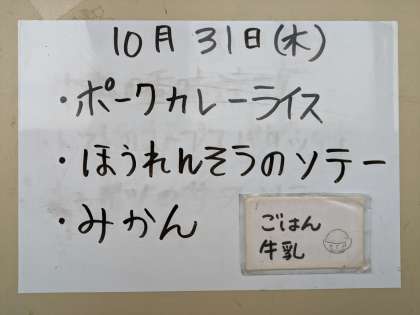 10月31日(木)
・ポークカレーライス
・ほうれんそうのソテー
・みかん
ごはん
牛乳